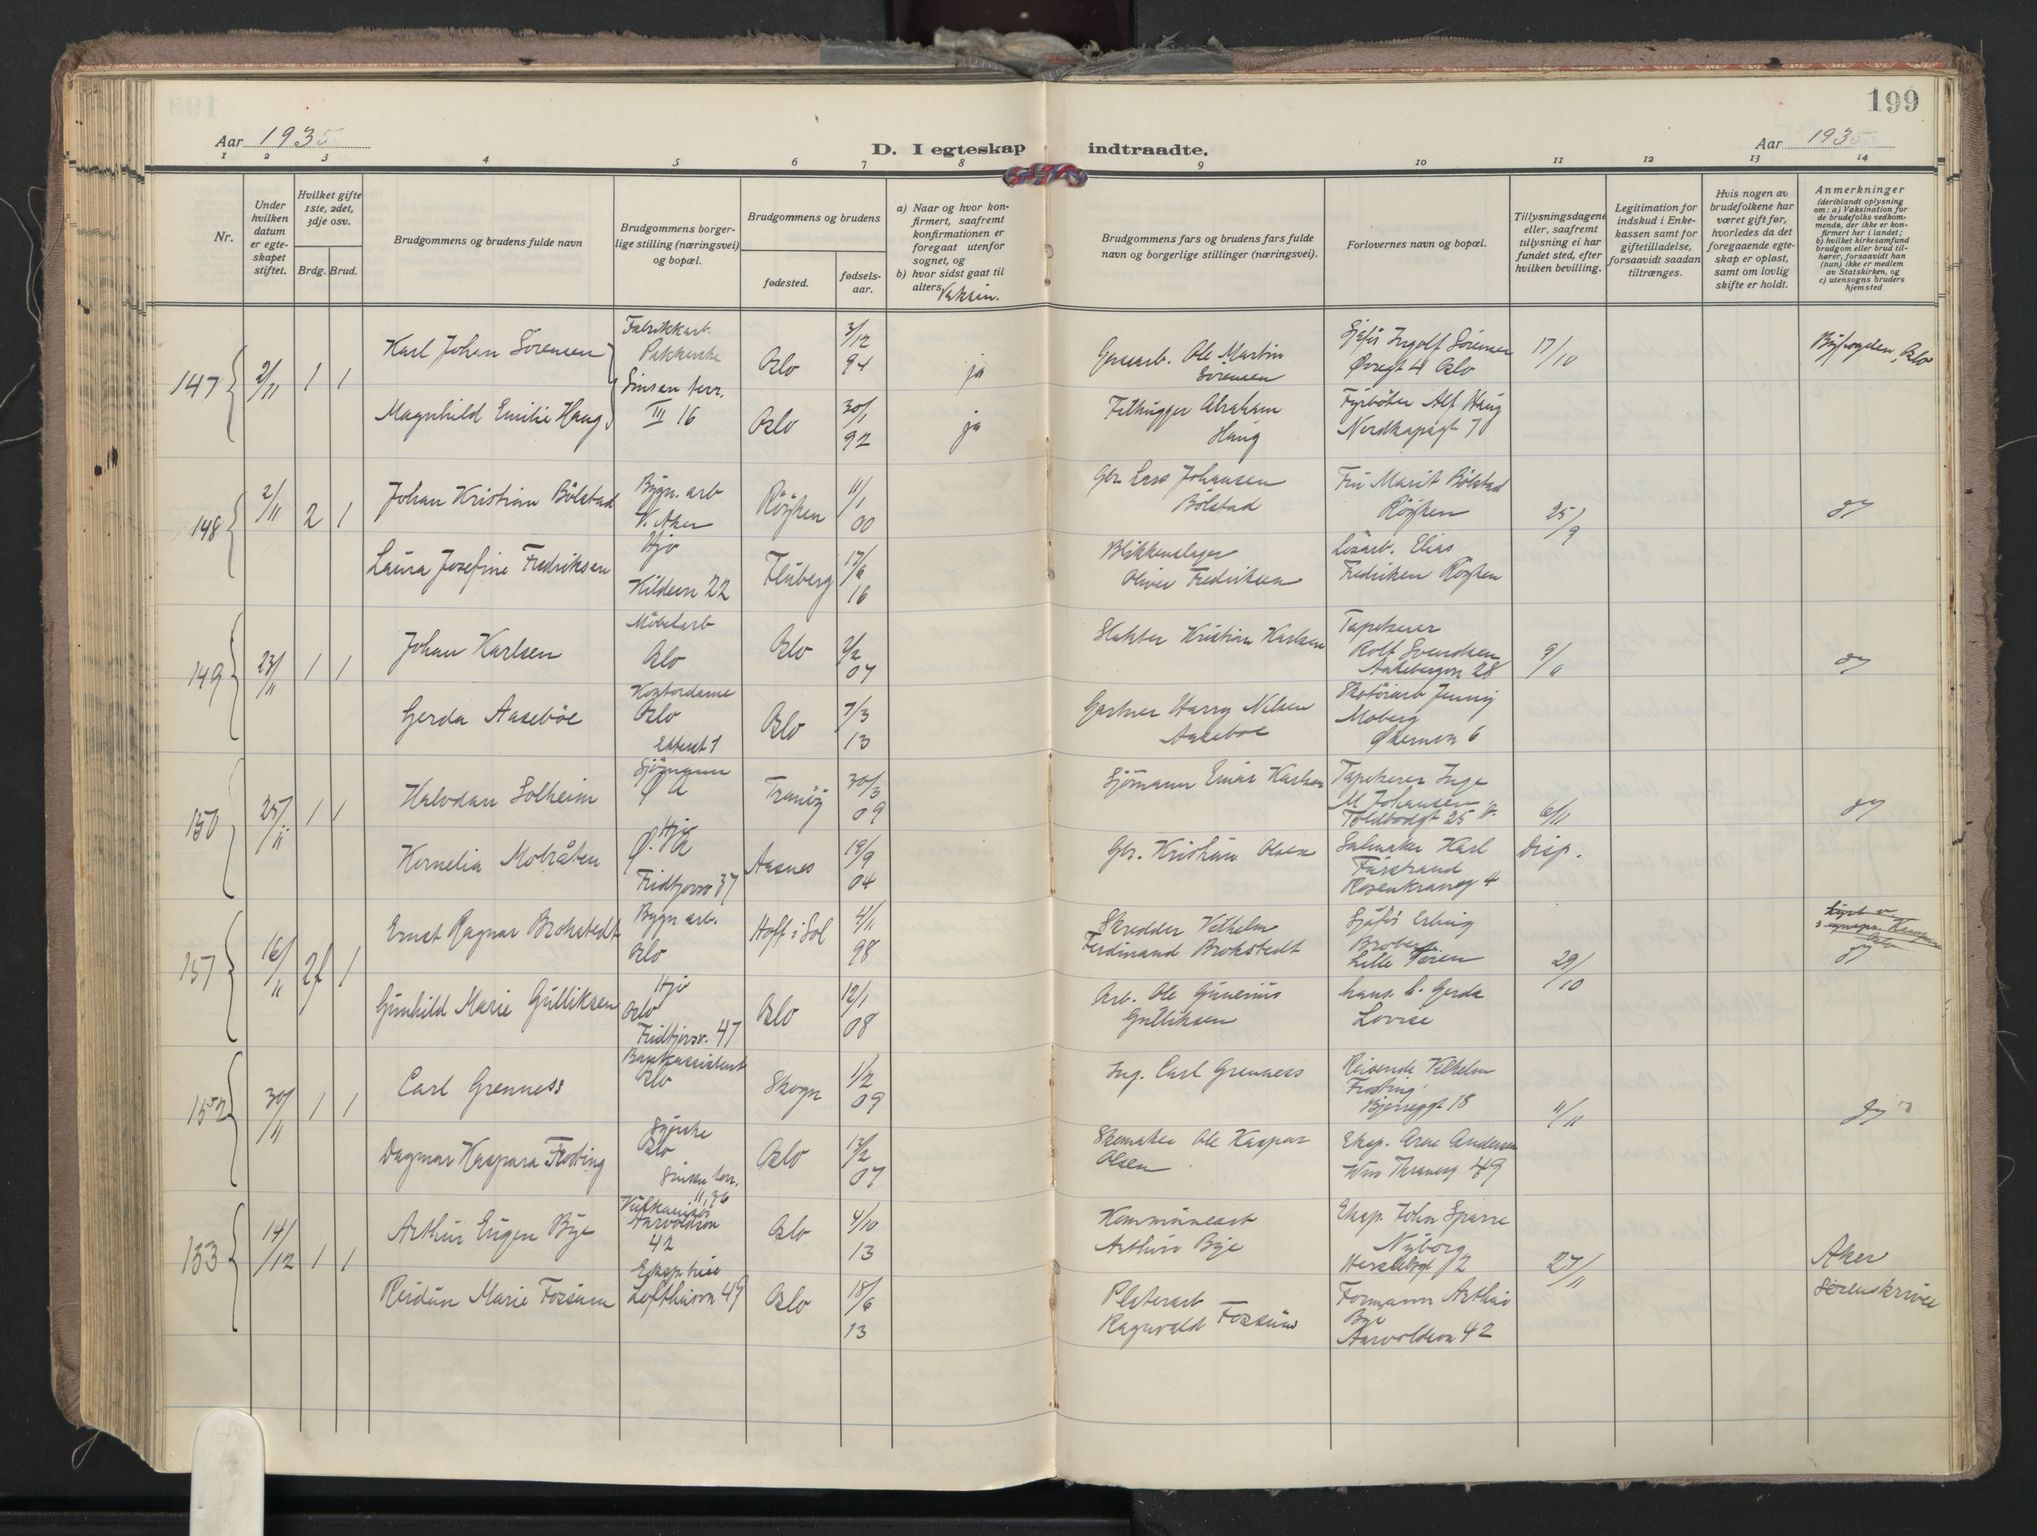 199
Aar 1935
D. I egteskap indtraadte.
Aar 1935
1 2 3 4 5 6 7 8 9 10 11 12 13 14
Nr.
Under hvilken datum er egteskapet stiftet.
Hvilket gifte 1ste, 2det, 3dje osv.
Brdg. Brud.
Brudgommens og brudens fulde navn
Brudgommens borgerlige stilling (næringsvei) og bopæl.
Brudgommens og brudens
fødested.
fødselsaar.
a) Naar og hvor konfirmert, saafremt konfirmationen er foregaat utenfor sognet, og
b) hvor sidst gaat til alters
Vaksin.
Brudgommens fars og brudens fars fulde navn og borgerlige stillinger (næringsvei).
Forlovernes navn og bopæl.
Tillysningsdagene eller, saafremt tillysning ei har fundet sted, efter hvilken bevilling.
Legitimation for indskud i Enkekassen samt for giftetilladelse, forsaavidt saadan tiltrænges.
Hvis nogen av brudefolkene har været gift før, hvorledes da det foregaaende egteskap er opløst, samt om lovlig skifte er holdt.
Anmerkninger (deriblandt oplysning om: a) Vaksination for de brudefolks vedkommende, der ikke er konfirmert her i landet; b) hvilket kirkesamfund brudgom eller brud tilhører, forsaavidt han (hun) ikke er medlem av Statskirken, og c) utensogns bruders hjemsted
147 2/11 1 1 Karl Johan Sorensen Fabrikkarb. Oslo 3/12 94 ja Ole Martin Sorensen Sjåfør Ingolf Sörensen Øvregt 4 Oslo 17/10 Byfogden, Oslo
Magnhild Emilie Haug Sinsen terr. III 16 Oslo 30/1 92 ja Abraham Haug Fyrböter Alf Haug Nordkapsgt 7
148 2/11 2 1 Johan Kristian Bölstad Bygn. arb V. Aker Röyken 11/1 00 Gbr. Lars Johansen Bölstad Fru Marit Bölstad Röyken 25/9
Laura Josefine Fredriksen Hjv Kildevn 22 Fluberg 17/6 16 Blikkenslager Oliver Fredriksen Lösarb. Elias Fredriksen Röyken
149 23/11 1 1 Johan Karlsen Möbelarb Oslo Oslo 2/2 07 Slakter Kristian Karlsen Tapetserer Rolf Svendsen Aakebergvn 28 9/11
Gerda Aasebøe Kontordame Oslo Oslo 7/3 13 Gartner Harry Nilsen Aaseboe Jenny Moberg Økernvn 6
150 25/11 1 1 Halvdan Solheim Sjömann Ø A Tranöy 30/3 09 Sjömann Einar Karlsen Tapetserer Inge M Johansen Toldbodgt 25 6/11
Kornelia Mobråten Hjv Ø. A Fridtjovsv 37 Aasnes 19/9 04 Gbr. Kristian Olsen Salmaker Karl Rosenkranzg 4 Disp.
151 16/11 2 1 Ernst Ragnar Brokstedt Bygn arb. Oslo Hoff i Sol 4/11 98 Skredder Vilhelm Ferdinand Brokstedt Sjåfør Erling Broberg Lille Frøen 29/10
Gunhild Marie Gulliksen Hjv Oslo Fridtjovsv. 47 Oslo 12/1 08 Arb. Ole Gunerius Gulliksen hans h. Gerda Lovise
152 30/11 1 1 Carl Grenness Bankassistent Oslo Skogn 1/2 09 Ing. Carl Grenness Reisende Vilhelm Frosting Bjerregt 18 11/11
Dagmar Kaspara Frosting Syerske Oslo Sinsen terr. 11, 36 Oslo 13/2 07 Skomaker Ole Kaspar Olsen Eksp. Arne Andersen Wm Thranesg 49
153 14/12 1 1 Arthur Eugen Bye Vulkanisör Aarvoldsvn 42 Oslo 4/10 13 Kommunearb Arthur Bye Eksp. John Sparre Nyborg Herslebsgt 12 27/11 Aker Sörenskriver
Reidun Marie Fossum Eksptrise Lofthusvn 49 Oslo 18/6 13 Platearb Ragnvald Fossum Formann Arthur Bye Aarvoldsvn 42